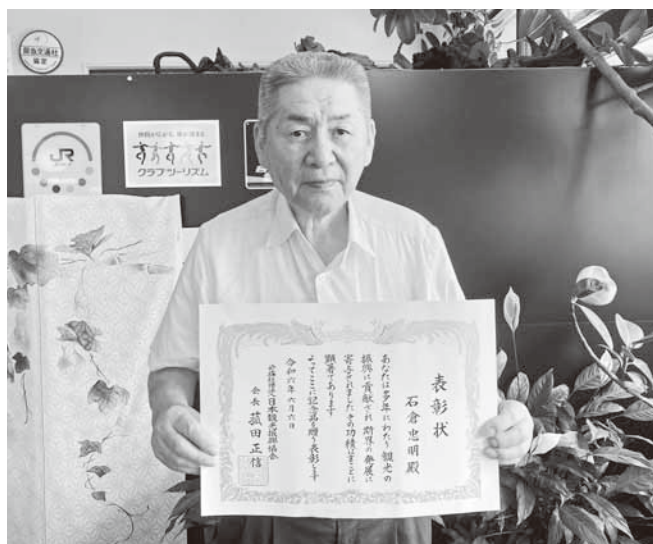 阪急交通社
JR
仲間が広がる、旅が深まる。
クラブツーリズム
表彰状
石倉忠明殿
あなたは多年にわたり観光の
振興に貢献され斯界の発展に
寄与されましたその功績はまことに
顕著であります
よってここに記念品を贈り表彰します
令和六年六月六日
公益社団法人日本観光振興協会
会長 菰田正信